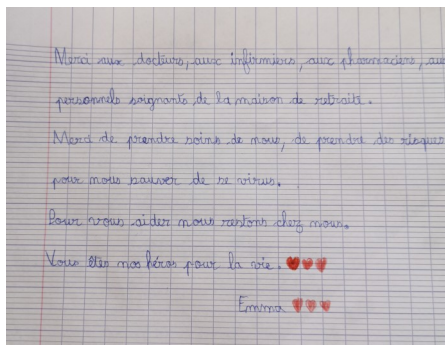 Merci aux docteurs, aux infirmiers, aux pharmaciens, aux
personnels soignants de la maison de retraite.
Merci de prendre soins de nous, de prendre des risques
pour nous sauver de se virus.
Pour vous aider nous restons chez nous.
Vous êtes nos héros pour la vie.
Emma